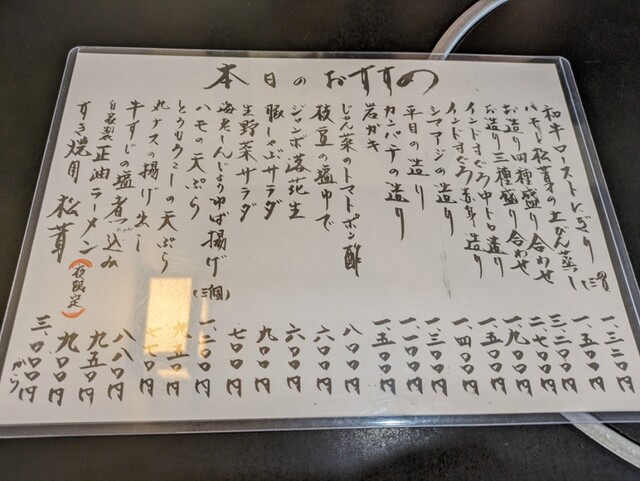 本日のおすすめ
和牛ローストにぎり(二貫) 一、三二〇円
ハモと松茸の土びん蒸し 一、五〇〇円
お造り四種盛り合わせ 二、七〇〇円
お造り三種盛り合わせ 一、九〇〇円
インドまぐろ中トロ造り 一、五〇〇円
インドまぐろ赤身造り 一、四〇〇円
シマアジの造り 一、三〇〇円
平目の造り
カンパチの造り 一、一〇〇円
岩ガキ 一、五〇〇円
じゅん菜のトマトポン酢 八〇〇円
枝豆の塩ゆで 六〇〇円
ジャンボ落花生 六〇〇円
豚しゃぶサラダ 九〇〇円
生野菜サラダ 七〇〇円
海老しんじょうゆば揚げ(三個) 一、二〇〇円
ハモの天ぷら 九五〇円
とうもろこしの天ぷら 七七〇円
丸ナスの揚げ出し 八八〇円
牛すじの塩煮込み 九五〇円
自家製正油ラーメン(夜限定) 九〇〇円
すき焼用松茸 三、〇〇〇円から